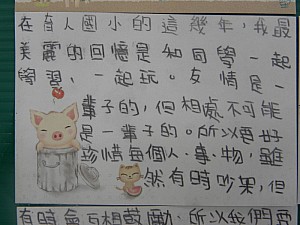 在育人國小的這幾年，我最
美麗的回憶是和同學一起
學習，一起玩。友情是一
輩子的，但相處不可能
是一輩子的。所以要好
珍惜每個人、事、物，雖
然有時吵架，但
有時會互相鼓勵，所以我們要